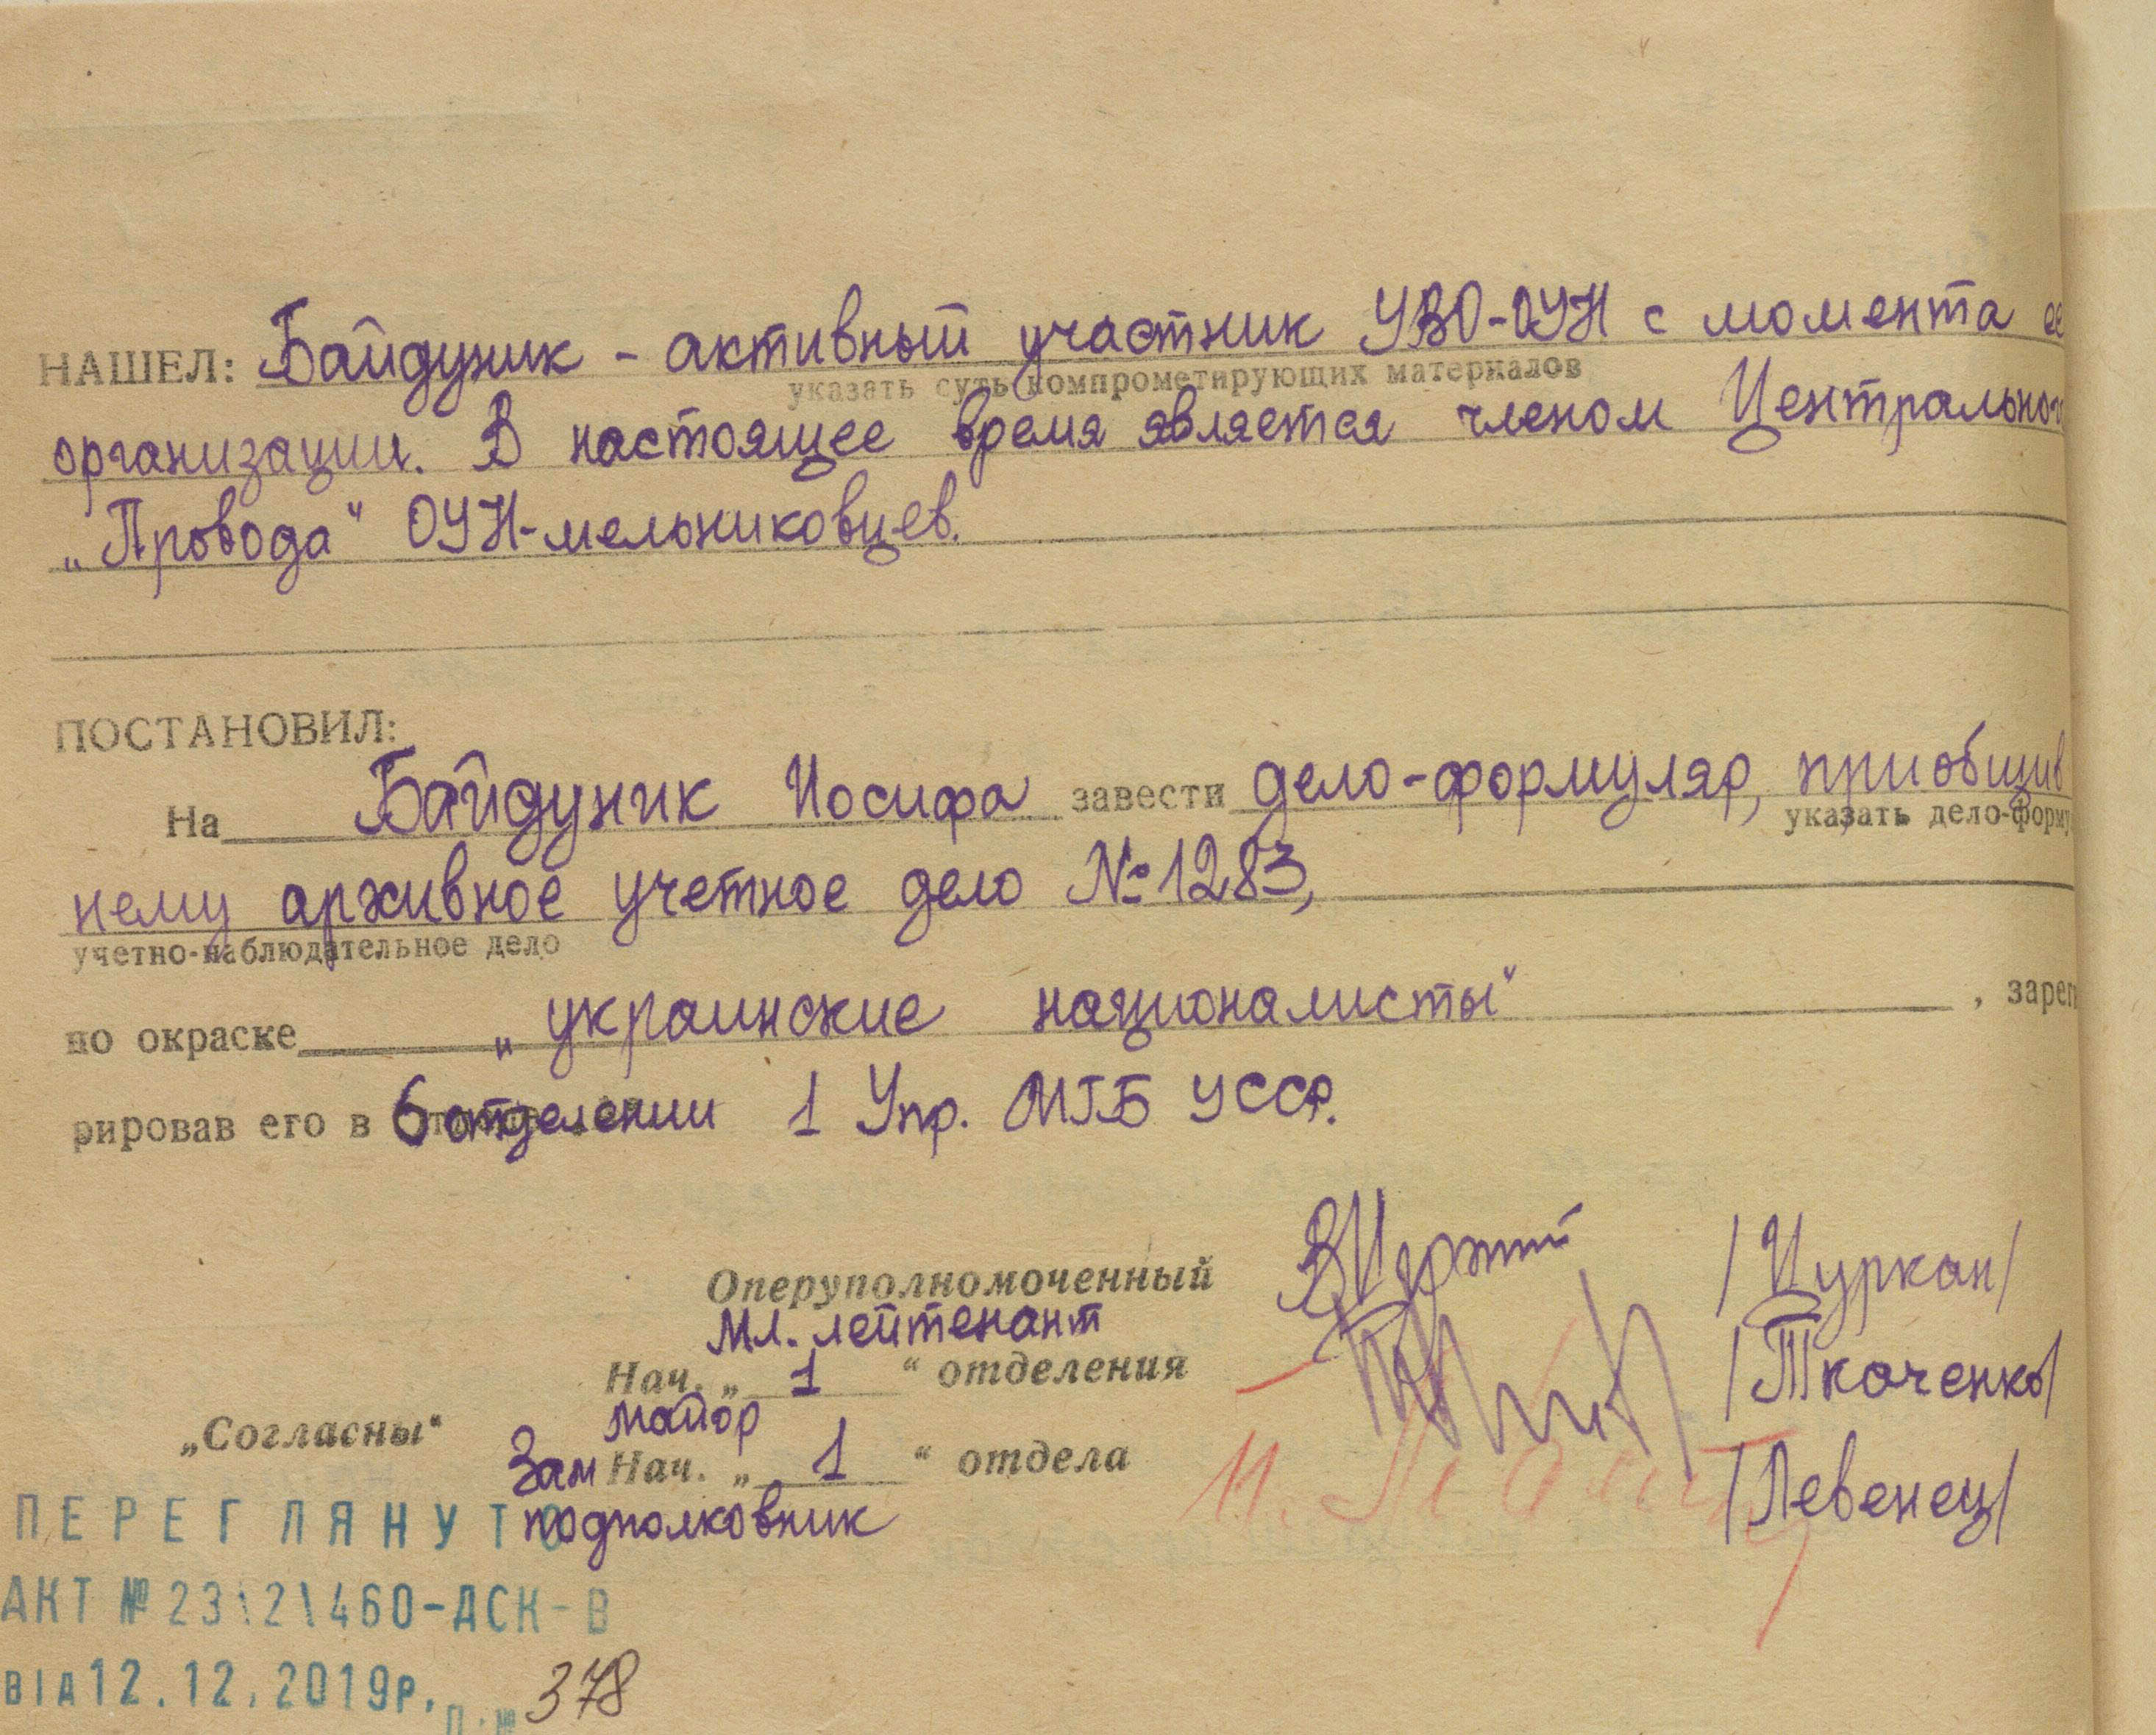 НАШЕЛ: Байдуник - активный участник УВО-ОУН с момента ее
указать суть компрометирующих материалов
организации. В настоящее время является членом Центрального
„Провода“ ОУН-мельниковцев.
ПОСТАНОВИЛ:
На Байдуник Иосифа завести дело-формуляр, приобщив
указать дело-форму
нему архивное учетное дело № 1283,
учетно-наблюдательное дело
по окраске „украинские националисты“, зарег
рировав его в 6 отделении 1 Упр. МГБ УССР.
Оперуполномоченный /Цуркан/
Мл. лейтенант
Нач. „ 1 “ отделения /Ткаченко/
майор
„Согласны“
Зам Нач. „ 1 “ отдела /Левенец/
подполковник
ПЕРЕГЛЯНУТО
АКТ № 23\2\460-ДСК-В
ВІД 12.12.2019р. п.№ 378